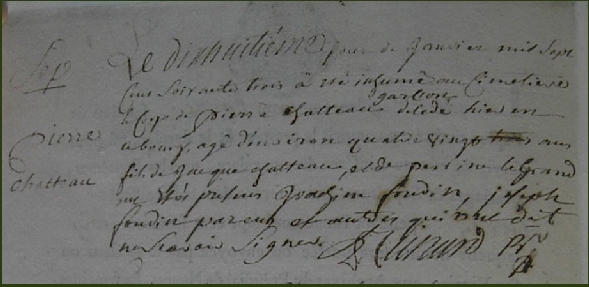 Sep
pierre
chatteau
Le dixhuitiéme jour de Janvier mil Sept
Cens Soixante trois à été inhumé au Cimetiere
garson
le Corps de pierre chatteau décédé hier en
ce bourg, agé denviron quatre vingt ans
fils de Jacque chatteau, et de perrine le Grand
presens Joachim foudin, joseph
foudin parens et autres qui ont dit
ne Scavoir Signer